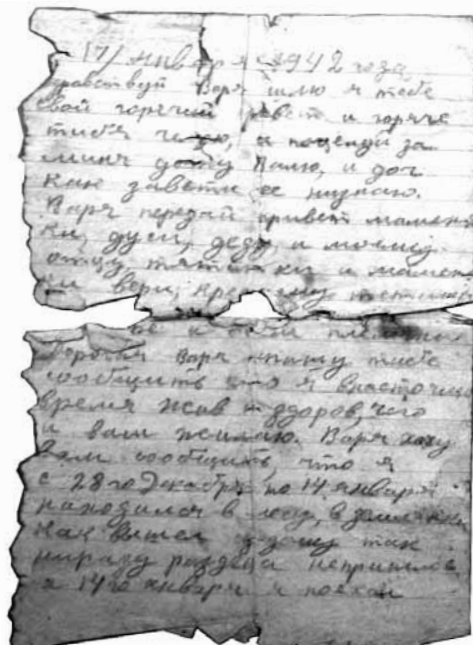 17/ января 1942 года
здравствуй Варя шлю я тебе
свой горячий привет и горяче
тибя целую, и поцелуй за
миня дочу Валю, и доч
как завети ее низнаю.
Варя передай привет мамень
ки, дуси, деду, и моему
отцу, тятеньки и мамень
ки вери, крёсному
Варя пишу тибе
сообщить что я внасточи
время жив и здоров, чего
и вам жилаю. Варя хочу
вам сообщить, что я
с 28 го декабря по 14 января
находился в лесу, в землянки
как вышел из дому так
ниразу раздеца непришлос
а 14 го января я поехал